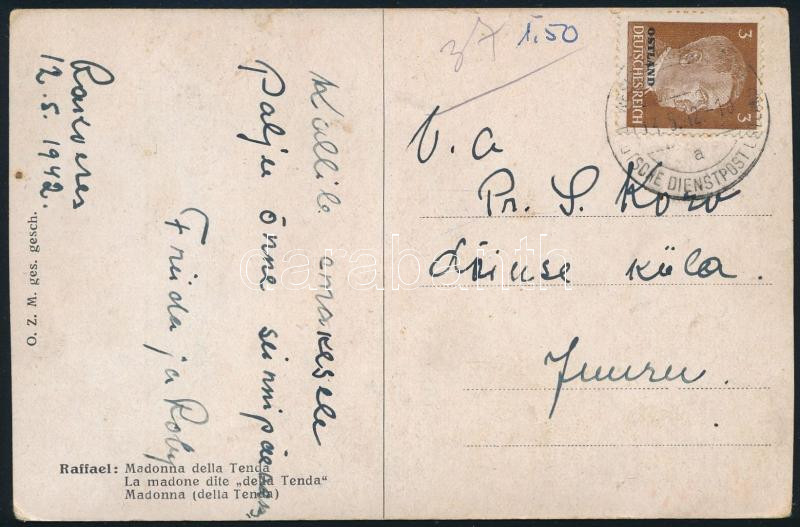 Rakveres
12.5.1942.
Kallile emakesele
Palju õnne sünnipäevaks
Friida ja Roby
O. Z. M. ges. gesch.
Raffael: Madonna della Tenda
La madone dite „della Tenda"
Madonna (della Tenda)
37 1.50
3 3
OSTLAND
DEUTSCHES REICH
a
DEUTSCHE DIENSTPOST
V. a
Pr. S. Koro
küla.
Juuru.
darabanth.com